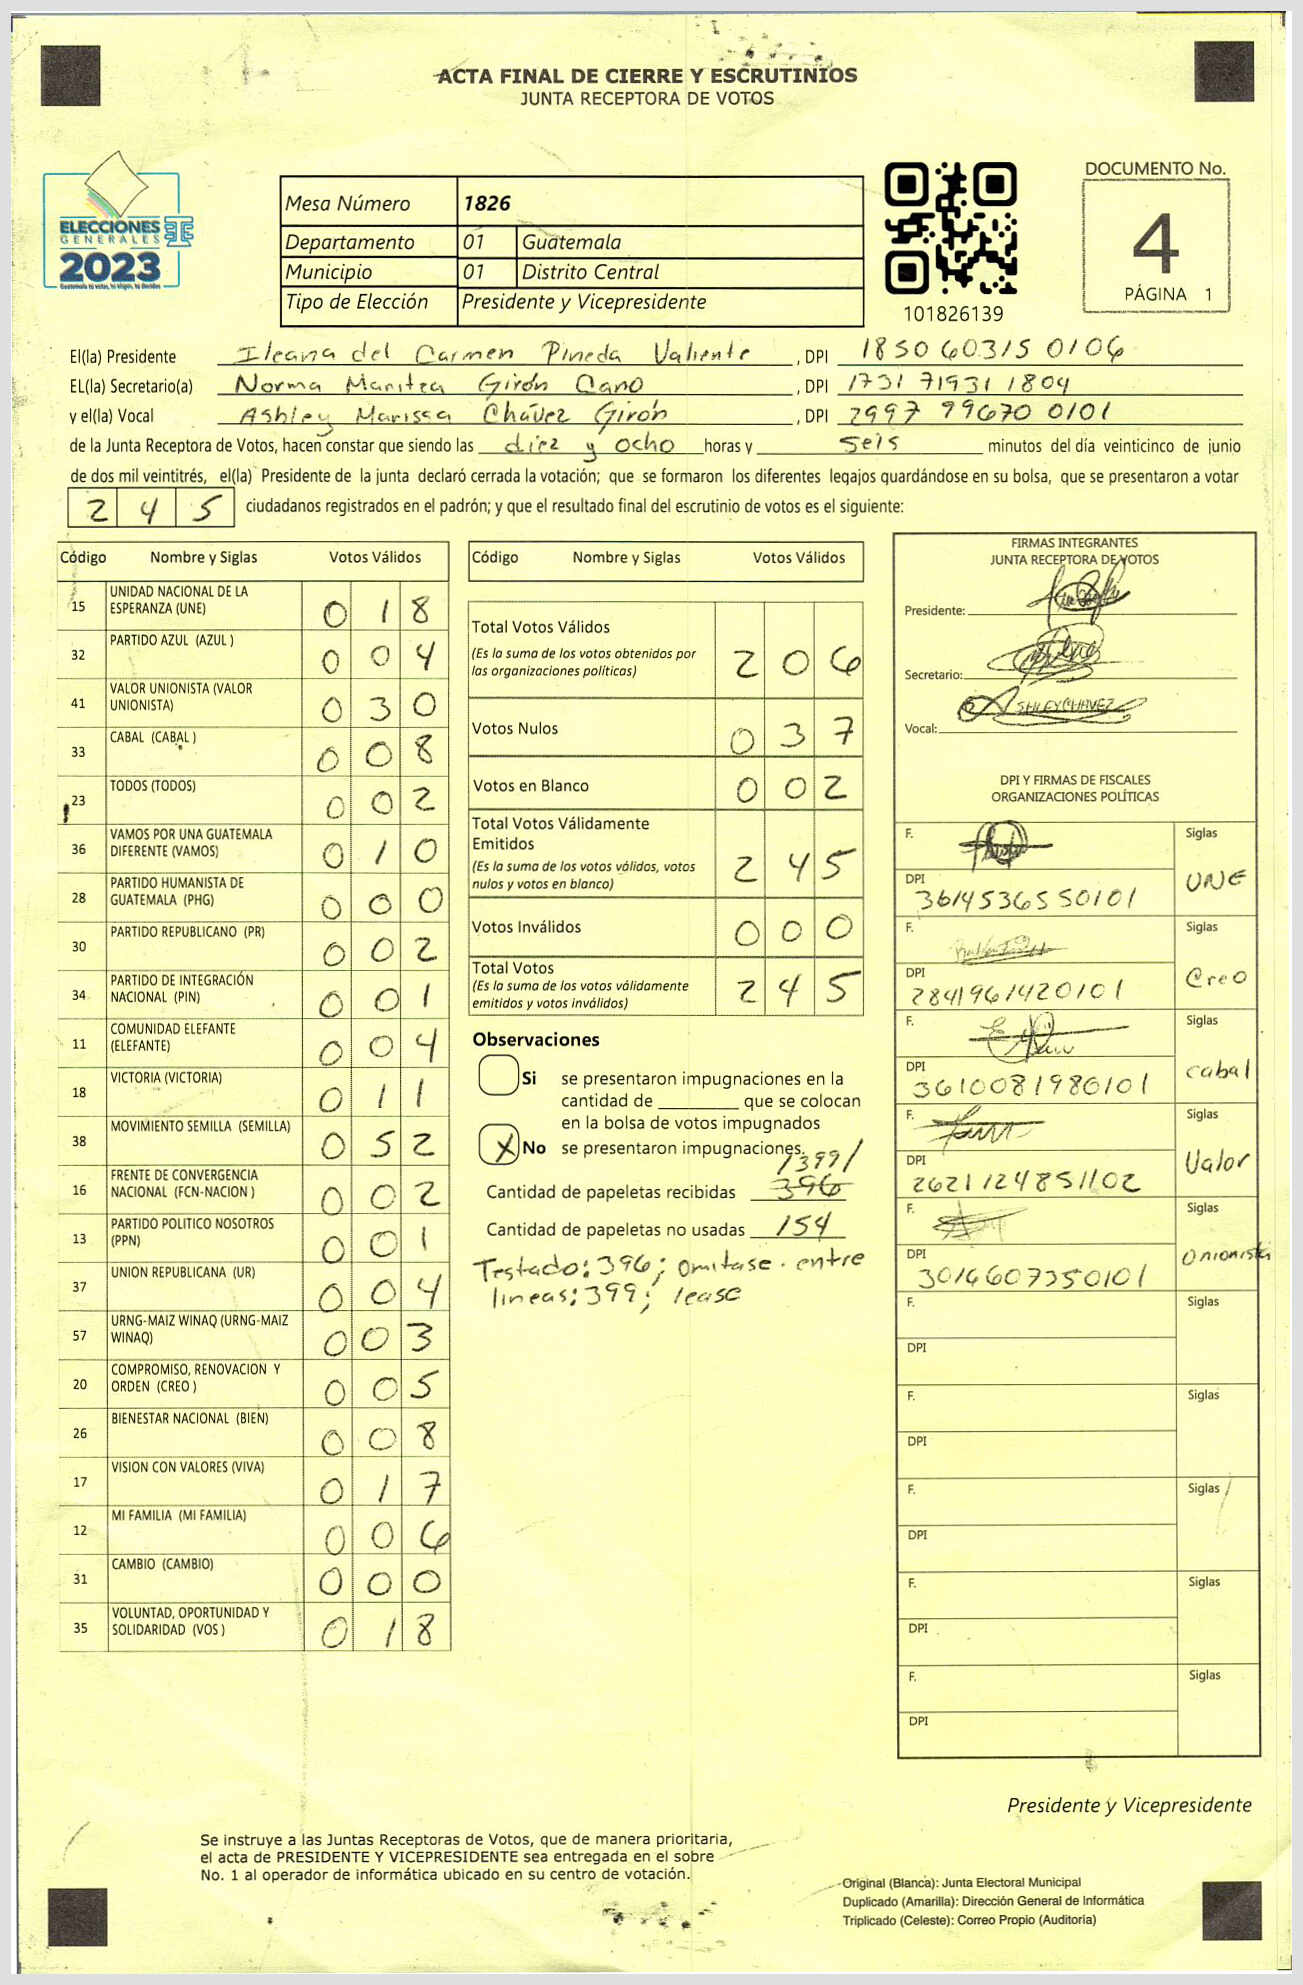 ACTA FINAL DE CIERRE Y ESCRUTINIOS
JUNTA RECEPTORA DE VOTOS
ELECCIONES
GENERALES
2023
Guatemala tú votas, tú eliges, tú decides
Mesa Número 1826
Departamento 01 Guatemala
Municipio 01 Distrito Central
Tipo de Elección Presidente y Vicepresidente
101826139
DOCUMENTO No.
4
PÁGINA 1
El(la) Presidente Ileana del Carmen Pineda Valiente, DPI 1850 60315 0106
EL(la) Secretario(a) Norma Maritza Girón Cano, DPI 1731 71931 1804
y el(la) Vocal Ashley Marissa Chávez Girón, DPI 2997 99670 0101
de la Junta Receptora de Votos, hacen constar que siendo las diez y ocho horas y seis minutos del día veinticinco de junio
de dos mil veintitrés, el(la) Presidente de la junta declaró cerrada la votación; que se formaron los diferentes legajos guardándose en su bolsa, que se presentaron a votar
245 ciudadanos registrados en el padrón; y que el resultado final del escrutinio de votos es el siguiente:
Código Nombre y Siglas Votos Válidos
15 UNIDAD NACIONAL DE LA ESPERANZA (UNE) 018
32 PARTIDO AZUL (AZUL ) 004
41 VALOR UNIONISTA (VALOR UNIONISTA) 030
33 CABAL (CABAL ) 008
23 TODOS (TODOS) 002
36 VAMOS POR UNA GUATEMALA DIFERENTE (VAMOS) 010
28 PARTIDO HUMANISTA DE GUATEMALA (PHG) 000
30 PARTIDO REPUBLICANO (PR) 002
34 PARTIDO DE INTEGRACIÓN NACIONAL (PIN) 001
11 COMUNIDAD ELEFANTE (ELEFANTE) 004
18 VICTORIA (VICTORIA) 011
38 MOVIMIENTO SEMILLA (SEMILLA) 052
16 FRENTE DE CONVERGENCIA NACIONAL (FCN-NACION ) 002
13 PARTIDO POLITICO NOSOTROS (PPN) 001
37 UNION REPUBLICANA (UR) 004
57 URNG-MAIZ WINAQ (URNG-MAIZ WINAQ) 003
20 COMPROMISO, RENOVACION Y ORDEN (CREO ) 005
26 BIENESTAR NACIONAL (BIEN) 008
17 VISION CON VALORES (VIVA) 017
12 MI FAMILIA (MI FAMILIA) 006
31 CAMBIO (CAMBIO) 000
35 VOLUNTAD, OPORTUNIDAD Y SOLIDARIDAD (VOS ) 018
Código Nombre y Siglas Votos Válidos
Total Votos Válidos 206
(Es la suma de los votos obtenidos por
las organizaciones políticas)
Votos Nulos 037
Votos en Blanco 002
Total Votos Válidamente
Emitidos 245
(Es la suma de los votos válidos, votos
nulos y votos en blanco)
Votos Inválidos 000
Total Votos 245
(Es la suma de los votos válidamente
emitidos y votos inválidos)
Observaciones
Si se presentaron impugnaciones en la
cantidad de ________ que se colocan
en la bolsa de votos impugnados
X No se presentaron impugnaciones.
/399/
Cantidad de papeletas recibidas 396
Cantidad de papeletas no usadas 154
Testado: 396; omitase. entre
lineas: 399; lease
FIRMAS INTEGRANTES
JUNTA RECEPTORA DE VOTOS
Presidente:
Secretario:
Vocal: ASHLEY CHAVEZ
DPI Y FIRMAS DE FISCALES
ORGANIZACIONES POLÍTICAS
F. Siglas
DPI 3614536550101 UNE
F. Siglas
DPI 2841961420101 Creo
F. Siglas
DPI 3610081980101 cabal
F. Siglas
DPI 2621124851102 Valor
F. Siglas
DPI 3014607350101 Unionista
F. Siglas
DPI
F. Siglas
DPI
F. Siglas
DPI
F. Siglas
DPI
F. Siglas
DPI
Presidente y Vicepresidente
Se instruye a las Juntas Receptoras de Votos, que de manera prioritaria,
el acta de PRESIDENTE Y VICEPRESIDENTE sea entregada en el sobre
No. 1 al operador de informática ubicado en su centro de votación.
Original (Blanca): Junta Electoral Municipal
Duplicado (Amarilla): Dirección General de Informática
Triplicado (Celeste): Correo Propio (Auditoría)